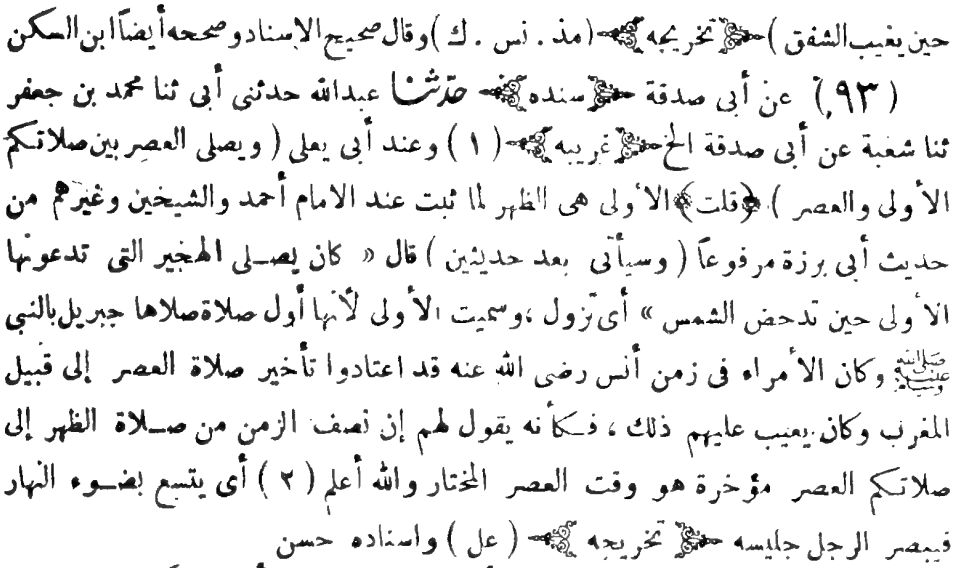 حين يغيب الشفق ) ﴿تخريجه﴾ ( مذ . نس . ك ) وقال صحيح الاسناد وصححه أيضاً ابن السكن
( ٩٣ ) عن أبى صدقة ﴿سنده﴾ حدّثنا عبدالله حدثنى أبى ثنا محمد بن جعفر
ثنا شعبة عن أبى صدقة الخ ﴿غريبه﴾ ( ١ ) وعند أبى يعلى ( ويصلى العصر بين صلاتكم
الأولى والعصر ) ﴿قلت﴾ الأولى هى الظهر لما ثبت عند الامام أحمد والشيخين وغيرهم من
حديث أبى برزة مرفوعاً ( وسيأتى بعد حديثين ) قال « كان يصلى الهجير التى تدعونها
الأولى حين تدحض الشمس » أى تزول ، وسميت الأولى لأنها أول صلاة صلاها جبريل بالنبى
ﷺ وكان الأمراء فى زمن أنس رضى الله عنه قد اعتادوا تأخير صلاة العصر إلى قبيل
المغرب وكان يعيب عليهم ذلك ، فكأنه يقول لهم إن نصف الزمن من صلاة الظهر إلى
صلاتكم العصر مؤخرة هو وقت العصر المختار والله أعلم ( ٢ ) أى يتسع بضوء النهار
فيبصر الرجل جليسه ﴿تخريجه﴾ ( عل ) واسناده حسن